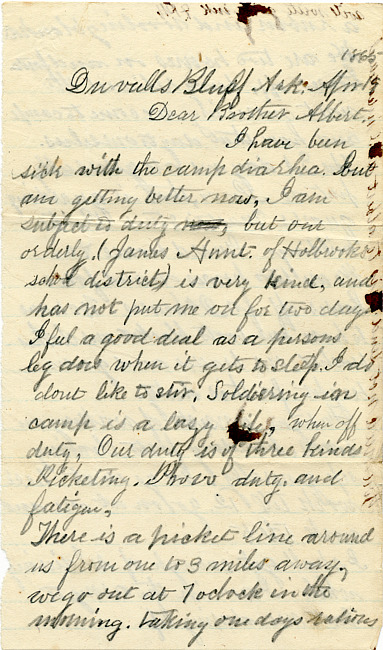 1865
Duvalls Bluff Ark. April
Dear Brother Albert,
I have been
sick with the camp diarhea, but
am getting better now, I am
subject to duty now, but our
orderly, (James Hunt. of Holbrooks
school district) is very kind, and
has not put me on for two days
I feel a good deal as a persons
leg does when it gets to sleep. I do
dont like to stir, Soldiering in
camp is a lazy life, when off
duty, Our duty is of three kinds
Picketing. Provo duty. and
fatigue,
There is a picket line around
us from one to 3 miles away,
we go out at 7 oclock in the
morning. taking one days rations